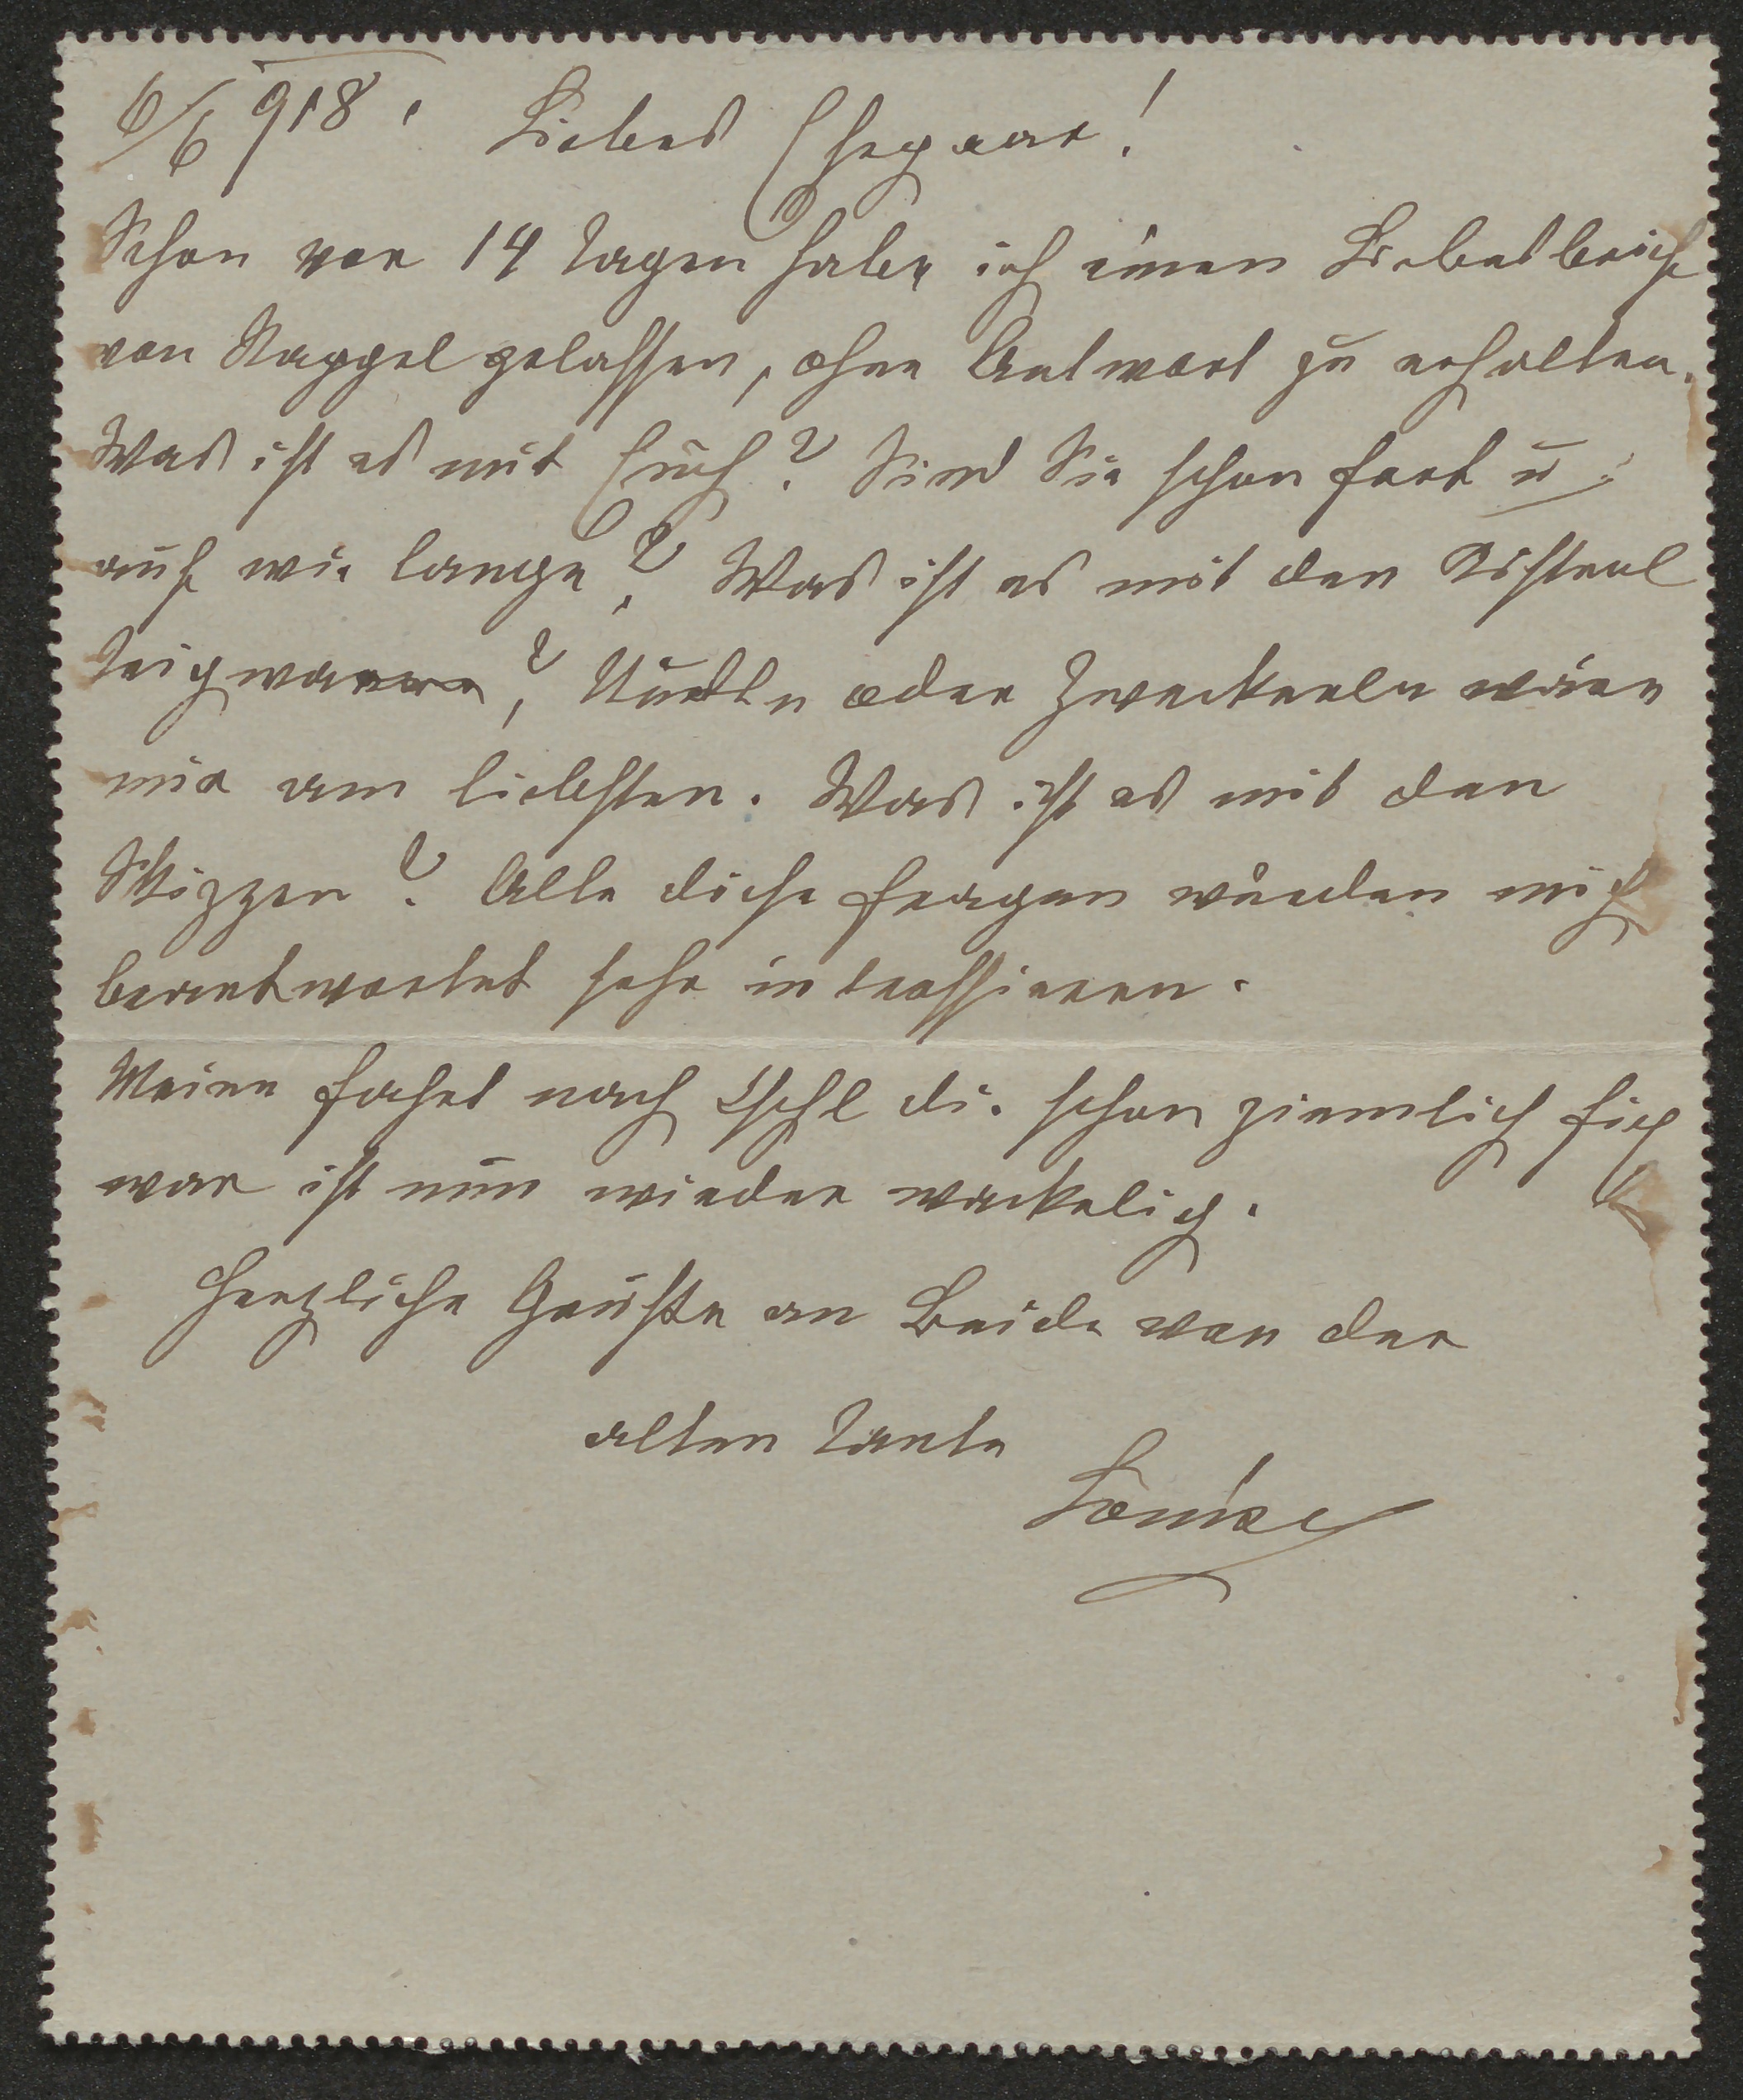 6/6 918. Liebes Ehepaar!
Schon vor 14 Tagen habe ich einen Liebesbrief
von Stappel gelassen, ohne Antwort zu erhalten.
Was ist es mit Euch? Sind Sie schon fort u.
auf wie lange? Was ist es mit den
Teigwaren? Nudeln oder Zweckerln wären
mir am liebsten. Was ist es mit den
Skizzen? Alle diese Fragen würden mich
beantwortet sehr intressieren.
Meine Fahrt nach Ischl die schon ziemlich fix
war ist nun wieder wackelig.
Herzliche Grüsse an Beide von der
alten Tante
Louise